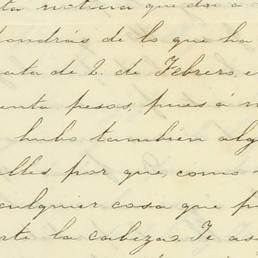 ta noticia que doi a
pondrás de lo que ha
ata de 2. de Febrero, e
enta pesos, pues á n
hubo también alg
alles por que, como
cualquier cosa que p
rte la cabeza. Te as